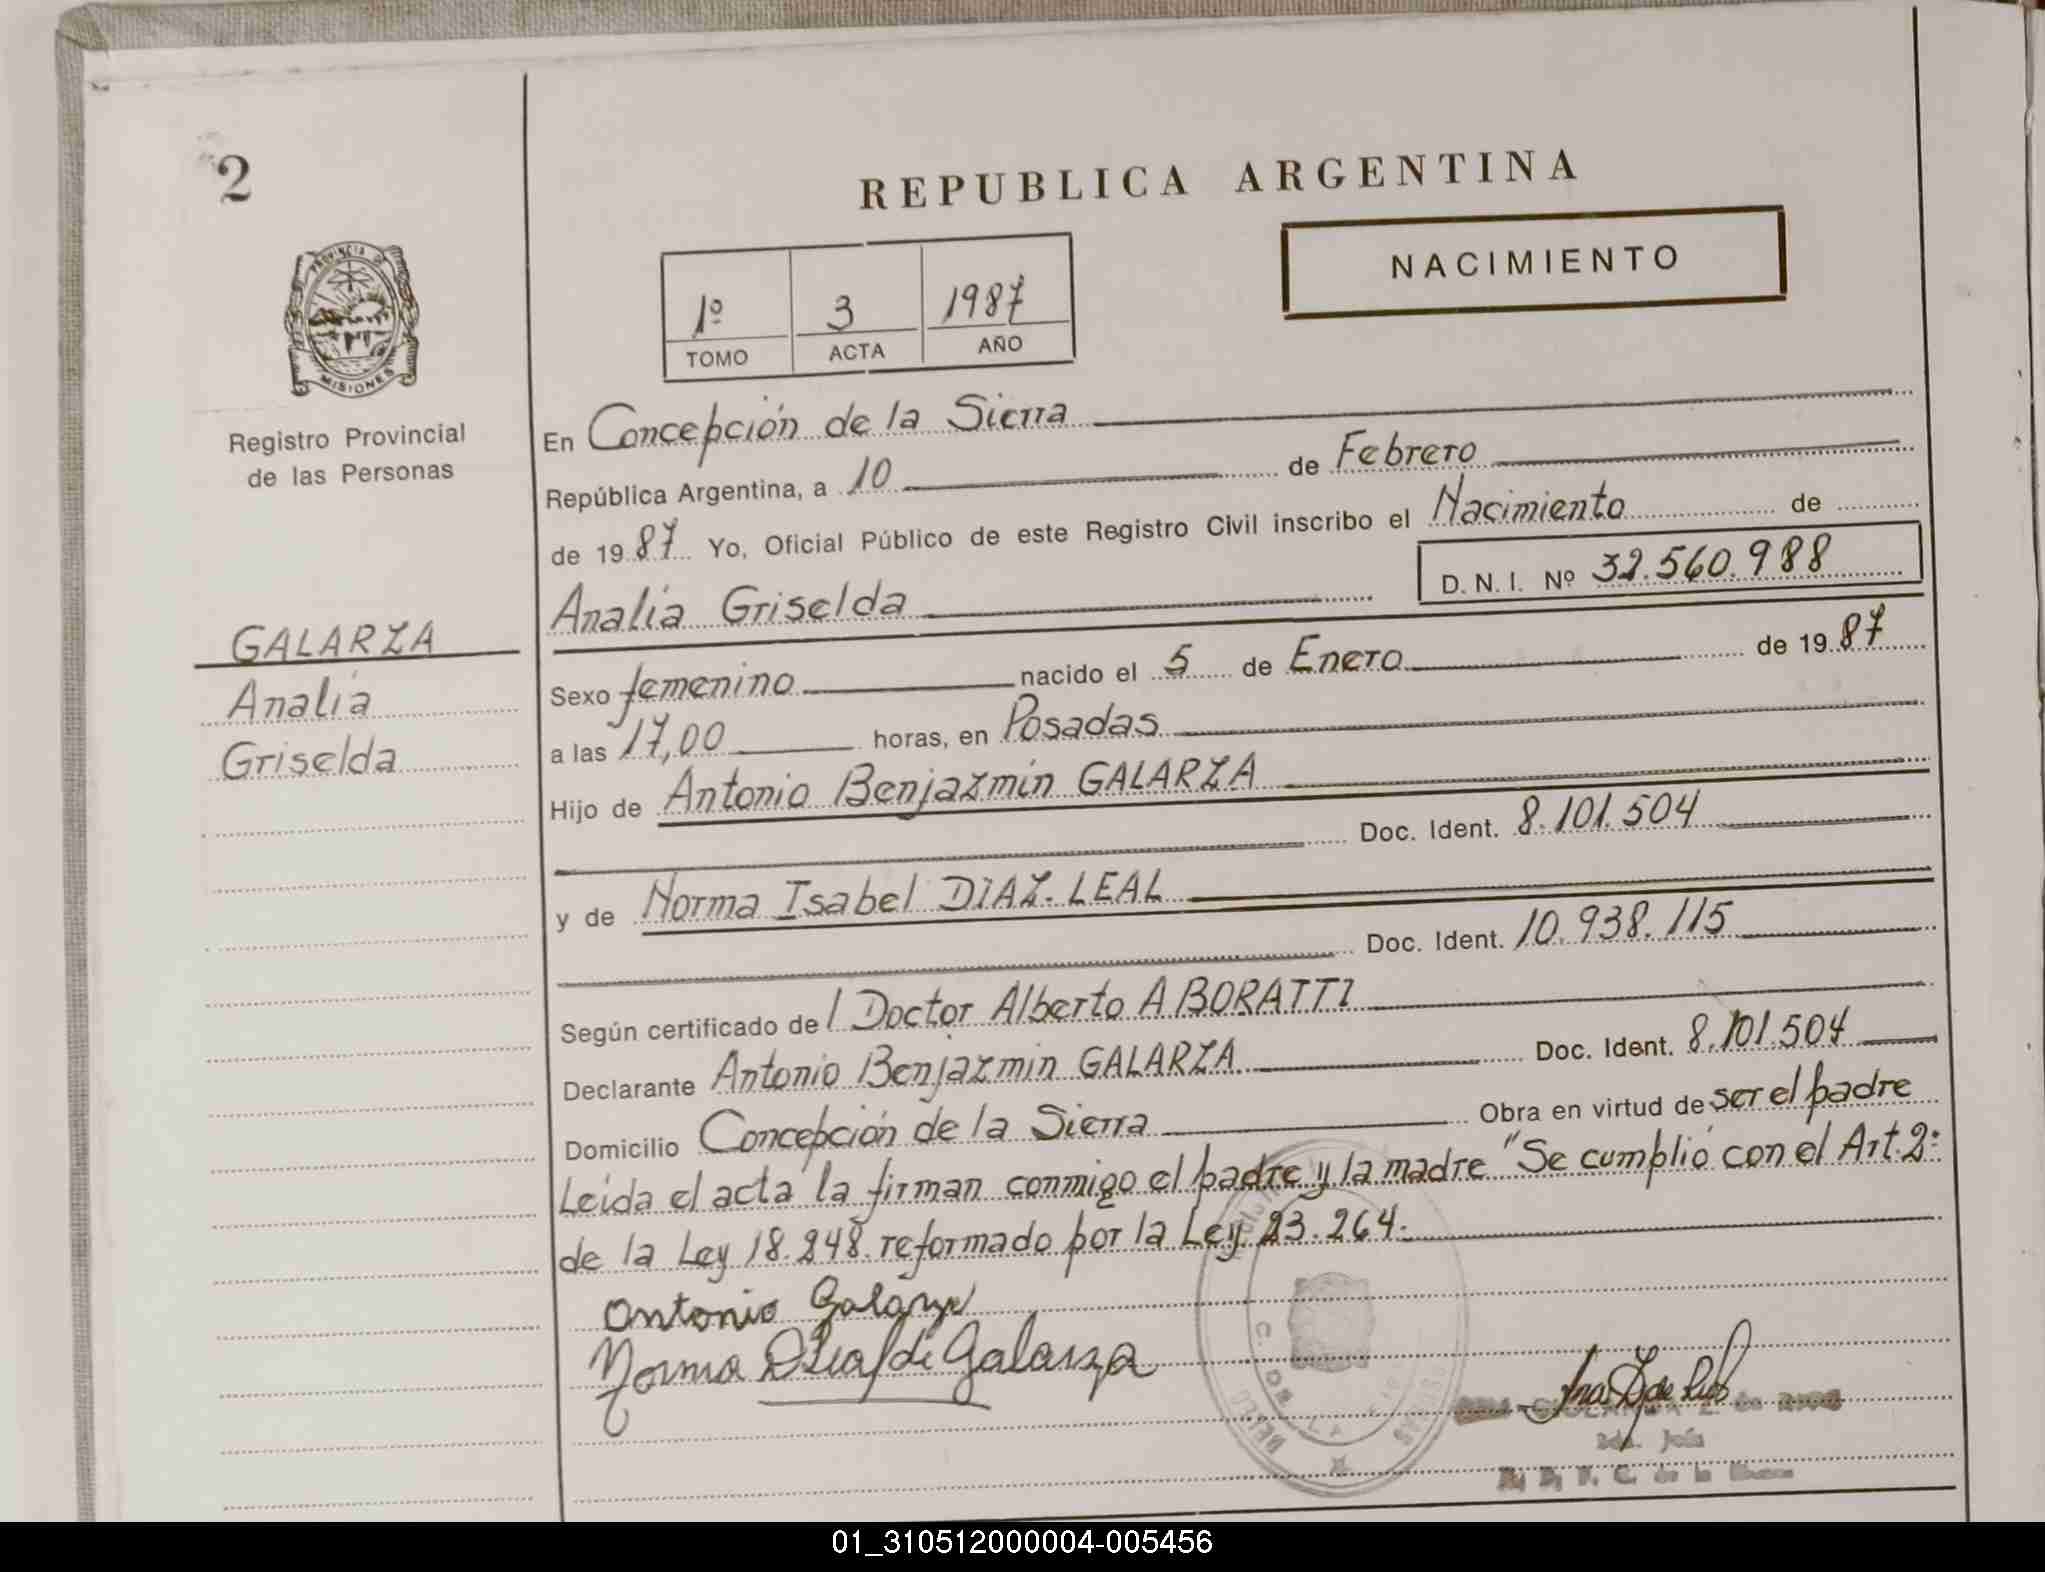 2
REPUBLICA ARGENTINA
NACIMIENTO
1º 3 1987
TOMO ACTA AÑO
PROVINCIA DE
MISIONES
Registro Provincial
de las Personas
GALARZA
Analia
Griselda
En Concepción de la Sierra
República Argentina, a 10 de Febrero
de 1987 Yo, Oficial Público de este Registro Civil inscribo el Nacimiento de
Analia Griselda D. N. I. Nº 32.560.988
Sexo femenino nacido el 5 de Enero de 1987
a las 17,00 horas, en Posadas
Hijo de Antonio Benjazmin GALARZA
Doc. Ident. 8.101.504
y de Norma Isabel DIAZ-LEAL
Doc. Ident. 10.938.115
Según certificado de l Doctor Alberto ABORATTI
Declarante Antonio Benjazmin GALARZA Doc. Ident. 8.101.504
Domicilio Concepción de la Sierra Obra en virtud de ser el padre
Leida el acta la firman conmigo el padre y la madre "Se cumplió con el Art. 2:
de la Ley 18.248. reformado por la Ley 23.264.
Antonio Galarza
Norma de Galarza
de la
01_310512000004-005456